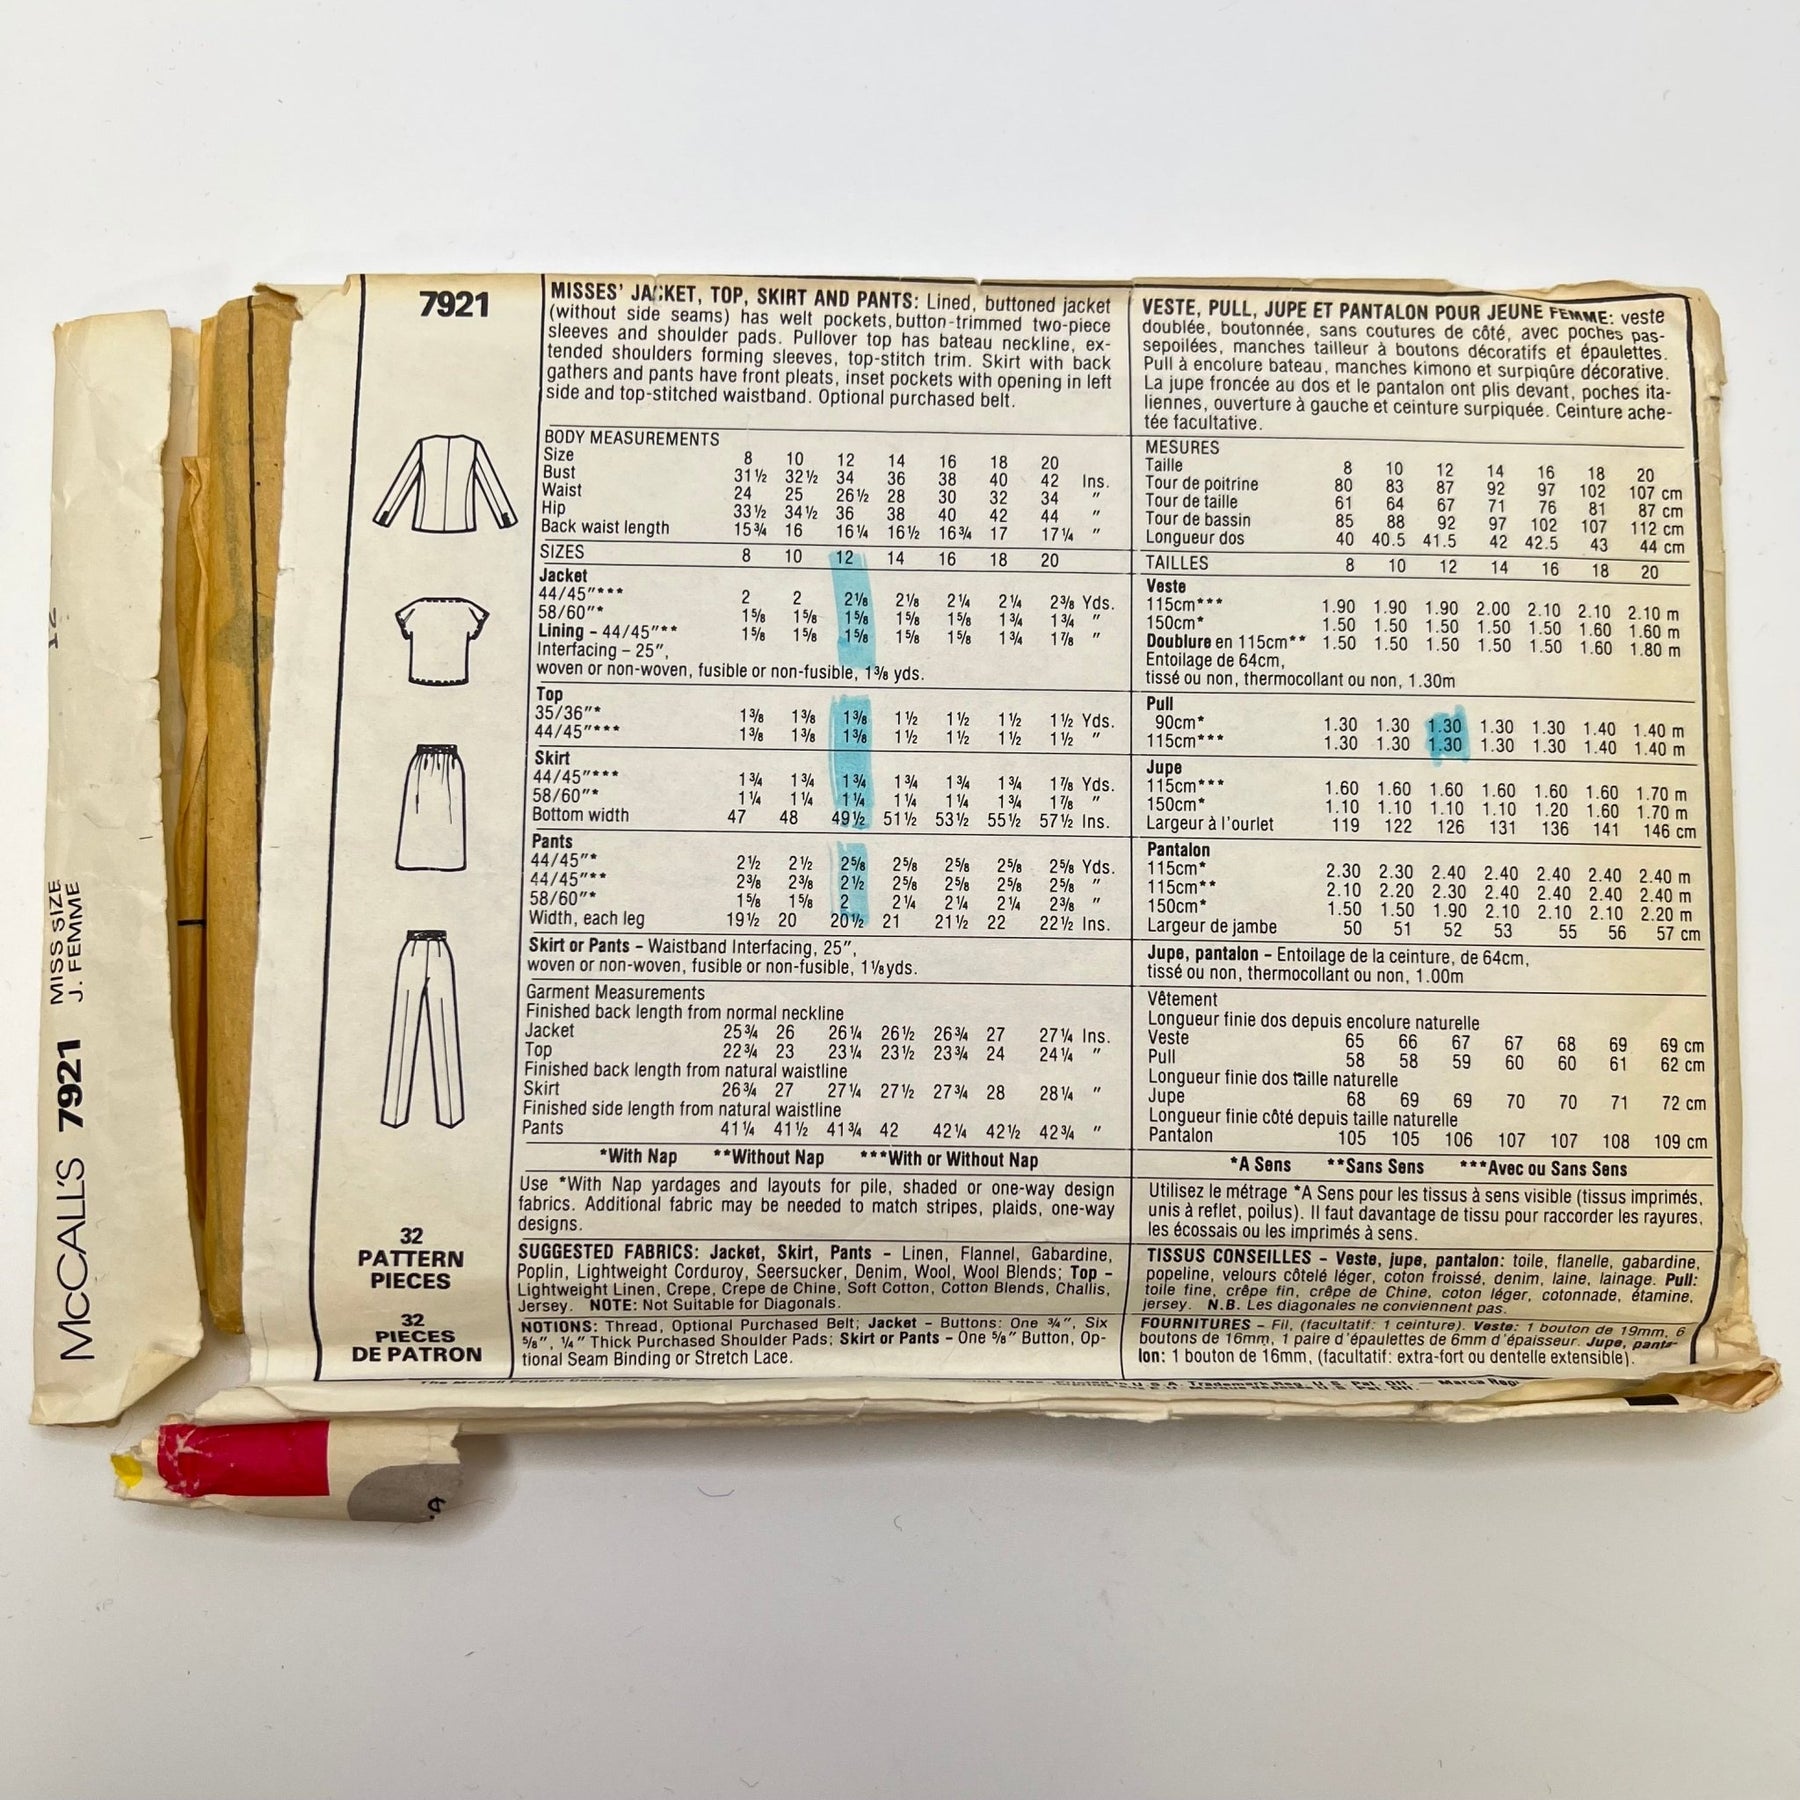 McCALL'S 7921 MISS SIZE
J. FEMME
12
7921
32
PATTERN
PIECES
32
PIECES
DE PATRON
MISSES' JACKET, TOP, SKIRT AND PANTS: Lined, buttoned jacket
(without side seams) has welt pockets, button-trimmed two-piece
sleeves and shoulder pads. Pullover top has bateau neckline, ex-
tended shoulders forming sleeves, top-stitch trim. Skirt with back
gathers and pants have front pleats, inset pockets with opening in left
side and top-stitched waistband. Optional purchased belt.
BODY MEASUREMENTS
Size 8 10 12 14 16 18 20
Bust 31½ 32½ 34 36 38 40 42 Ins.
Waist 24 25 26½ 28 30 32 34 "
Hip 33½ 34½ 36 38 40 42 44 "
Back waist length 15¾ 16 16¼ 16½ 16¾ 17 17¼ "
SIZES 8 10 12 14 16 18 20
Jacket
44/45"*** 2 2 2⅛ 2⅛ 2¼ 2¼ 2⅜ Yds.
58/60"* 1⅝ 1⅝ 1⅝ 1⅝ 1⅝ 1¾ 1¾ "
Lining – 44/45"** 1⅝ 1⅝ 1⅝ 1⅝ 1⅝ 1¾ 1⅞ "
Interfacing – 25",
woven or non-woven, fusible or non-fusible, 1⅜ yds.
Top
35/36"* 1⅜ 1⅜ 1⅜ 1½ 1½ 1½ 1½ Yds.
44/45"*** 1⅜ 1⅜ 1⅜ 1½ 1½ 1½ 1½ "
Skirt
44/45"*** 1¾ 1¾ 1¾ 1¾ 1¾ 1¾ 1⅞ Yds.
58/60"* 1¼ 1¼ 1¼ 1¼ 1¼ 1¾ 1⅞ "
Bottom width 47 48 49½ 51½ 53½ 55½ 57½ Ins.
Pants
44/45"* 2½ 2½ 2⅝ 2⅝ 2⅝ 2⅝ 2⅝ Yds.
44/45"** 2⅜ 2⅜ 2½ 2⅝ 2⅝ 2⅝ 2⅝ "
58/60"* 1⅝ 1⅝ 2 2¼ 2¼ 2¼ 2⅜ "
Width, each leg 19½ 20 20½ 21 21½ 22 22½ Ins.
Skirt or Pants – Waistband Interfacing, 25",
woven or non-woven, fusible or non-fusible, 1⅛yds.
Garment Measurements
Finished back length from normal neckline
Jacket 25¾ 26 26¼ 26½ 26¾ 27 27¼ Ins.
Top 22¾ 23 23¼ 23½ 23¾ 24 24¼ "
Finished back length from natural waistline
Skirt 26¾ 27 27¼ 27½ 27¾ 28 28¼ "
Finished side length from natural waistline
Pants 41¼ 41½ 41¾ 42 42¼ 42½ 42¾ "
*With Nap **Without Nap ***With or Without Nap
Use *With Nap yardages and layouts for pile, shaded or one-way design
fabrics. Additional fabric may be needed to match stripes, plaids, one-way
designs.
SUGGESTED FABRICS: Jacket, Skirt, Pants – Linen, Flannel, Gabardine,
Poplin, Lightweight Corduroy, Seersucker, Denim, Wool, Wool Blends; Top –
Lightweight Linen, Crepe, Crepe de Chine, Soft Cotton, Cotton Blends, Challis,
Jersey. NOTE: Not Suitable for Diagonals.
NOTIONS: Thread, Optional Purchased Belt; Jacket – Buttons: One ¾", Six
⅝", ¼" Thick Purchased Shoulder Pads; Skirt or Pants – One ⅝" Button, Op-
tional Seam Binding or Stretch Lace.
VESTE, PULL, JUPE ET PANTALON POUR JEUNE FEMME: veste
doublée, boutonnée, sans coutures de côté, avec poches pas-
sepoilées, manches tailleur à boutons décoratifs et épaulettes.
Pull à encolure bateau, manches kimono et surpiqûre décorative.
La jupe froncée au dos et le pantalon ont plis devant, poches ita-
liennes, ouverture à gauche et ceinture surpiquée. Ceinture ache-
tée facultative.
MESURES
Taille 8 10 12 14 16 18 20
Tour de poitrine 80 83 87 92 97 102 107 cm
Tour de taille 61 64 67 71 76 81 87 cm
Tour de bassin 85 88 92 97 102 107 112 cm
Longueur dos 40 40.5 41.5 42 42.5 43 44 cm
TAILLES 8 10 12 14 16 18 20
Veste
115cm*** 1.90 1.90 1.90 2.00 2.10 2.10 2.10 m
150cm* 1.50 1.50 1.50 1.50 1.50 1.60 1.60 m
Doublure en 115cm** 1.50 1.50 1.50 1.50 1.50 1.60 1.80 m
Entoilage de 64cm,
tissé ou non, thermocollant ou non, 1.30m
Pull
90cm* 1.30 1.30 1.30 1.30 1.30 1.40 1.40 m
115cm*** 1.30 1.30 1.30 1.30 1.30 1.40 1.40 m
Jupe
115cm*** 1.60 1.60 1.60 1.60 1.60 1.60 1.70 m
150cm* 1.10 1.10 1.10 1.10 1.20 1.60 1.70 m
Largeur à l'ourlet 119 122 126 131 136 141 146 cm
Pantalon
115cm* 2.30 2.30 2.40 2.40 2.40 2.40 2.40 m
115cm** 2.10 2.20 2.30 2.40 2.40 2.40 2.40 m
150cm* 1.50 1.50 1.90 2.10 2.10 2.10 2.20 m
Largeur de jambe 50 51 52 53 55 56 57 cm
Jupe, pantalon – Entoilage de la ceinture, de 64cm,
tissé ou non, thermocollant ou non, 1.00m
Vêtement
Longueur finie dos depuis encolure naturelle
Veste 65 66 67 67 68 69 69 cm
Pull 58 58 59 60 60 61 62 cm
Longueur finie dos taille naturelle
Jupe 68 69 69 70 70 71 72 cm
Longueur finie côté depuis taille naturelle
Pantalon 105 105 106 107 107 108 109 cm
*A Sens **Sans Sens ***Avec ou Sans Sens
Utilisez le métrage *A Sens pour les tissus à sens visible (tissus imprimés,
unis à reflet, poilus). Il faut davantage de tissu pour raccorder les rayures,
les écossais ou les imprimés à sens.
TISSUS CONSEILLES – Veste, jupe, pantalon: toile, flanelle, gabardine,
popeline, velours côtelé léger, coton froissé, denim, laine, lainage. Pull:
toile fine, crêpe fin, crêpe de Chine, coton léger, cotonnade, étamine,
jersey. N.B. Les diagonales ne conviennent pas.
FOURNITURES – Fil, (facultatif: 1 ceinture). Veste: 1 bouton de 19mm, 6
boutons de 16mm, 1 paire d'épaulettes de 6mm d'épaisseur. Jupe, panta-
lon: 1 bouton de 16mm, (facultatif: extra-fort ou dentelle extensible).